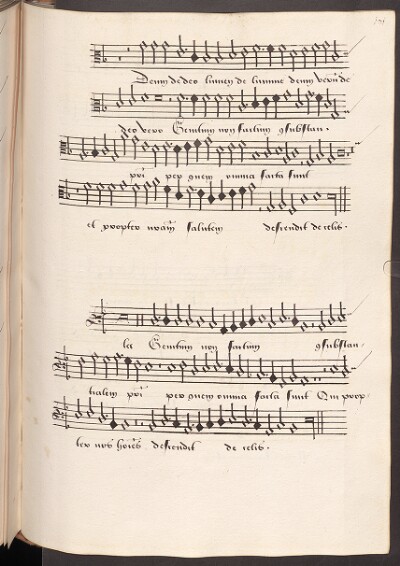 Deum de deo lumen de lumine deum verū de
deo vero Genitum non factum ꝯsubstan.
pri per quem omnia facta sunt
et propter nrām salutem descendit de celis.
Genitum non factum ꝯsubstan-
tialem pri per quem omnia facta sunt Qui prop-
ter nos hoīes descendit de celis.